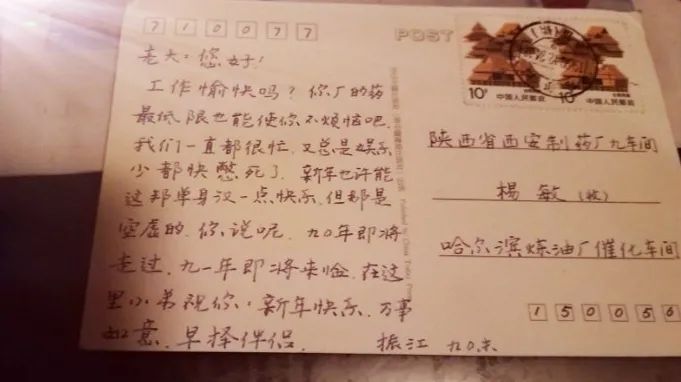 710077
老大：您好！
工作愉快吗？你厂的药
最低限也能使你不烦恼吧.
我们一直都很忙.又总是娱乐
少都快憋死了.新年也许能
这帮单身汉一点快乐.但都是
空虚的.你说呢.九〇年即将
走过.九一年即将来临.在这
里小弟祝你：新年快乐.万事
如意.早择伴侣.
振江 九〇.末.
POST
10分
中国人民邮政
10分
中国人民邮政
陕西省西安制药厂九车间
杨敏（收）
哈尔滨炼油厂催化车间
150056